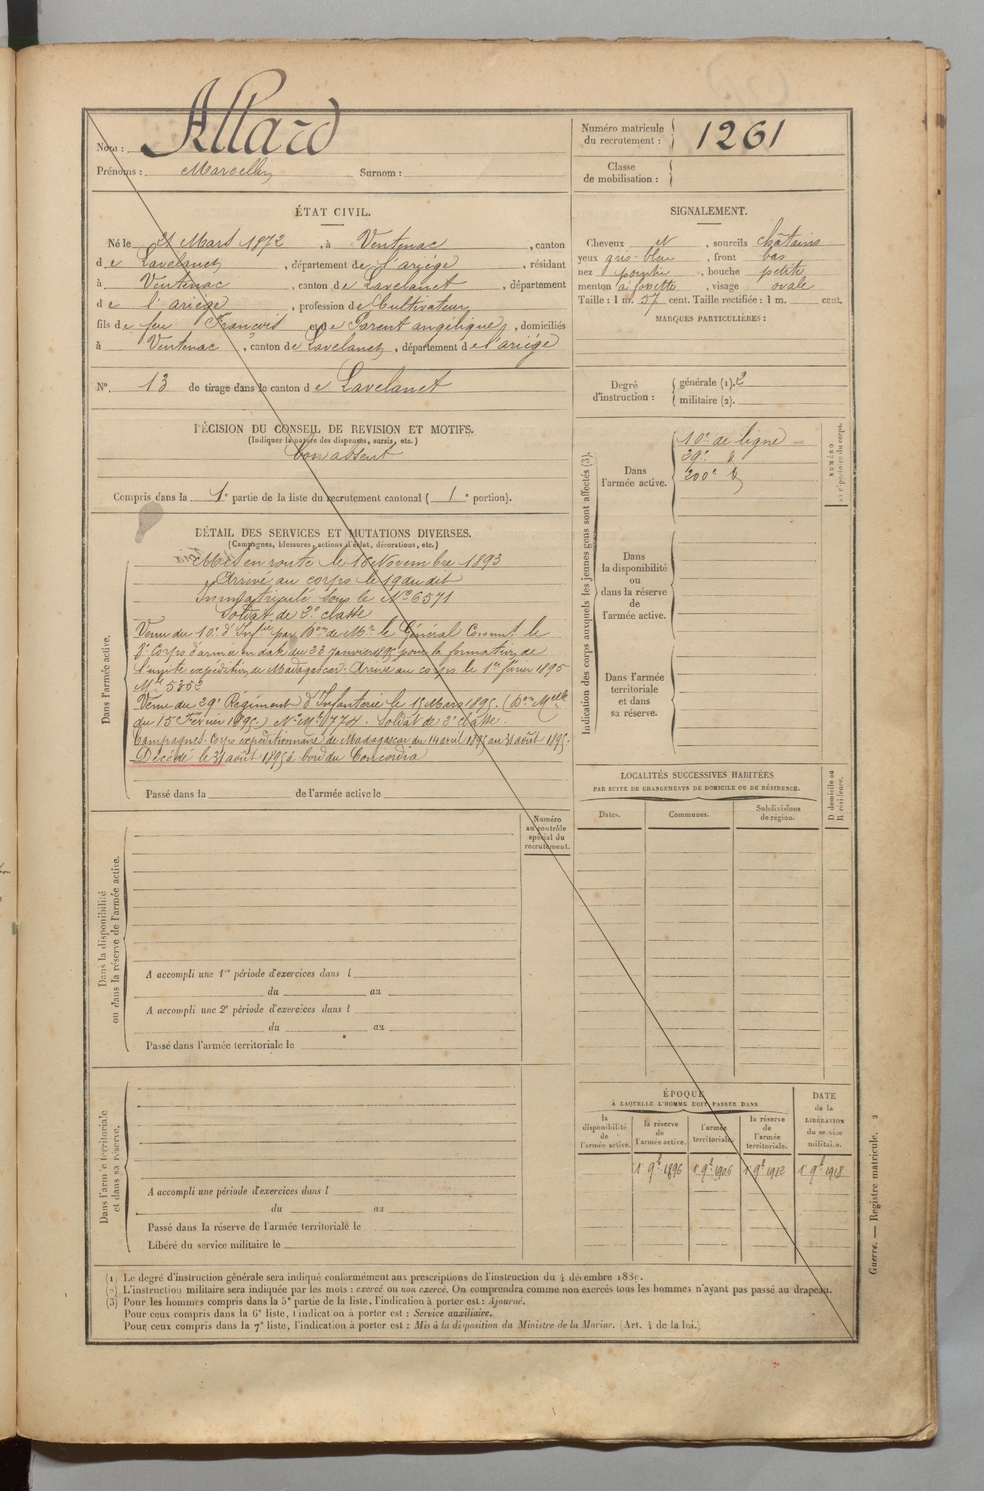 Nom : Allard
Prénoms : Marcellin Surnom :
Numéro matricule du recrutement : 1261
Classe de mobilisation :
ÉTAT CIVIL.
Né le 21 Mars 1872, à Ventenac, canton
de Lavelanet, département de l'ariège, résidant
à Ventenac, canton de Lavelanet, département
de l'ariège, profession de Cultivateur
fils de feu François et de Parent angélique, domiciliés
à Ventenac, canton de Lavelanet, département de l'ariège
N°. 13 de tirage dans le canton de Lavelanet
DÉCISION DU CONSEIL DE REVISION ET MOTIFS.
(Indiquer la nature des dispenses, sursis, etc.)
bon absent
Compris dans la 1e partie de la liste du recrutement cantonal ( 1e portion).
SIGNALEMENT.
Cheveux et, sourcils châtains
yeux gris-bleu, front bas
nez pointu, bouche petite
menton à fossette, visage ovale
Taille : 1 m. 57 cent. Taille rectifiée : 1 m. cent.
MARQUES PARTICULIÈRES :
Degré d'instruction : générale (1). 2
militaire (2).
DÉTAIL DES SERVICES ET MUTATIONS DIVERSES.
(Campagnes, blessures, actions d'éclat, décorations, etc.)
Dans l'armée active.
Mis en route le 16 Novembre 1893
Arrivé au corps le 19 du dit
Immatriculé sous le N° 6571
Soldat de 2e classe
Venu du 10e d'Infrie par Don de Mr le Général Commt le
Corps d'armée en date du 22 Janvier 1895 pour la formation de
l'unité expéditre de Madagascar. Arrivé au corps le 1er février 1895
Mle 5352
Venu du 29e Régiment d'Infanterie le 15 Mars 1895. (Don Mlle
du 15 Février 1895) N° Mle 1774. Soldat de 2e classe.
Campagnes. Corps expéditionnaire de Madagascar du 14 avril 1895 au 31 août 1895.
Décédé le 31 août 1895 à bord du Concordia
Passé dans la de l'armée active le
Indication des corps auxquels les jeunes gens sont affectés (3).
Dans l'armée active.
10e de ligne
29e d
200e d
NUMÉRO
Dans la disponibilité ou dans la réserve de l'armée active.
Dans l'armée territoriale et dans sa réserve.
LOCALITÉS SUCCESSIVES HABITÉES
PAR SUITE DE CHANGEMENTS DE DOMICILE OU DE RÉSIDENCE.
Dates. Communes. Subdivisions de région. D domicile ou R résidence.
Dans la disponibilité ou dans la réserve de l'armée active.
Numéro au contrôle spécial du recrutement.
A accompli une 1re période d'exercices dans l
du au
A accompli une 2e période d'exercices dans l
du au
Passé dans l'armée territoriale le
Dans l'armée territoriale et dans sa réserve.
A accompli une période d'exercices dans l
du au
Passé dans la réserve de l'armée territoriale le
Libéré du service militaire le
ÉPOQUE
À LAQUELLE L'HOMME DOIT PASSER DANS
la disponibilité de l'armée active. la réserve de l'armée active. l'armée territoriale. la réserve de l'armée territoriale.
DATE de la LIBÉRATION du service militaire.
1 9bre 1896 1 9bre 1906 1 9bre 1912 1 9bre 1918
(1) Le degré d'instruction générale sera indiqué conformément aux prescriptions de l'instruction du 4 décembre 1889.
(2) L'instruction militaire sera indiquée par les mots : exercé ou non exercé. On comprendra comme non exercés tous les hommes n'ayant pas passé au drapeau.
(3) Pour les hommes compris dans la 5e partie de la liste, l'indication à porter est : Ajourné.
Pour ceux compris dans la 6e liste, l'indication à porter est : Service auxiliaire.
Pour ceux compris dans la 7e liste, l'indication à porter est : Mis à la disposition du Ministre de la Marine. (Art. 4 de la loi.)
Guerre. — Registre matricule. 2